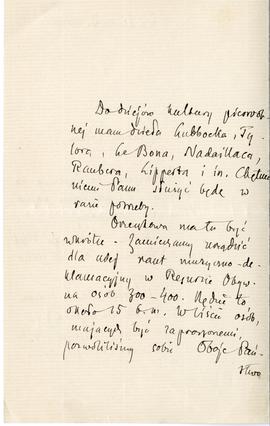 Do dziejów kultury pierwot-
nej mam dzieła Lubbocka, Ty-
lora, Le Bona, Nadaillaca,
Raubera, Lipperta i in. Chętnie
niemi Panu służyć będę w
razie potrzeby.
Orzeszkowa ma tu być
wkrótce. Zamierzamy urządzić
dla niej raut muzyczno-de-
klamacyjny w Resursie Obyw.
na osób 300-400. Będzie to
około 15 b.m. W liście osób,
mających być zaproszonemi,
pozwoliliśmy sobie Oboje Pań-
stwa